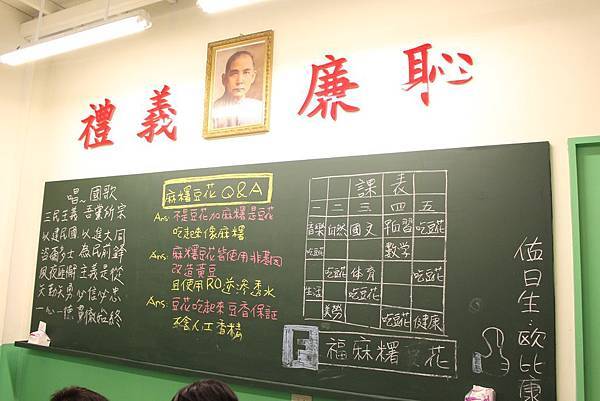 禮 義 廉 恥
唱~國歌
三民主義 吾黨所宗
以建民國 以進大同
咨爾多士 為民前鋒
夙夜匪懈 主義是從
矢勤矢勇 必信必忠
一心一德 貫徹始終
麻糬豆花 Q&A
Ans: 不是豆花加麻糬是豆花
吃起來像麻糬
Ans: 麻糬豆花皆使用非基因
改造黃豆
且使用RO逆滲透水
Ans: 豆花吃起來豆香保証
不含人工香精
課表
一 二 三 四 五
音樂 自然 國文 自習 吃豆花
吃豆花 數學
吃豆花 体育 吃豆花
生活 吃豆花
美勞 吃豆花 健康
福麻糬 花
值日生:歐比康